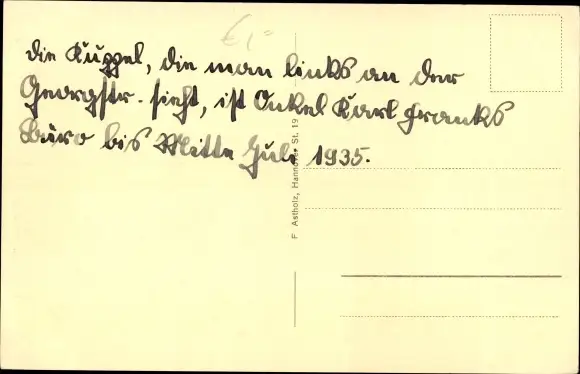 € 1,=
die Kuppel, die man links an der
Georgstr. sieht, ist Onkel Karl Franks
Büro bis Mitte Juli 1935.
F. Astholz, Hannover St. 19